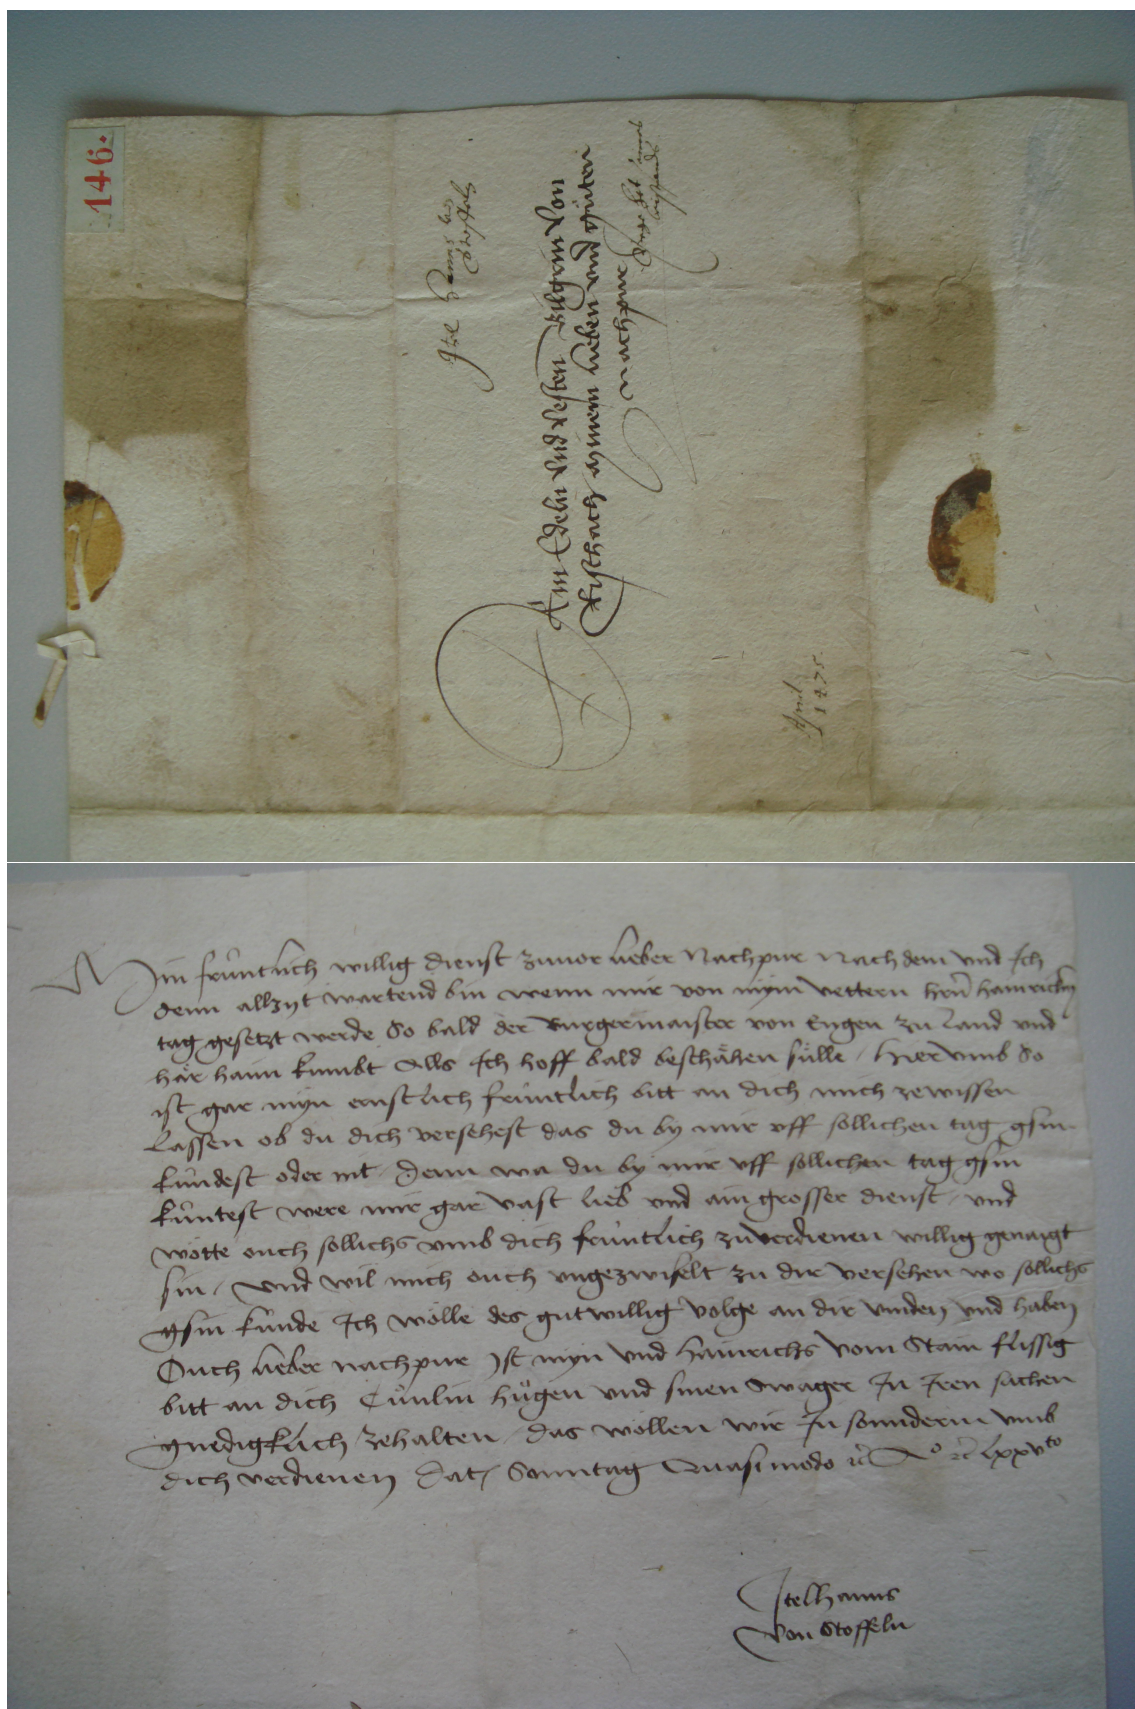 146.
Itel Hanns vō
Stoffeln
Dem Edeln und vesten Bilgrin von
Rischach mynem lieben und gůten
nachpure
April
1475.
Min frůntlich willig dienst zuuor lieber Nachpur Nach dem und Ich
denn allzyt wartend bin wenn mir von mym vettern hrñ hainrichen
tag gesetzt werde So bald der Burgermaister von Engen zů Land und
här haim kumbt Alls Ich hoff bald beschähen sülle / Hier umb So
ist gar myn ernstlich frůntlich bitt an dich mich ze wissen
Lassen ob du dich versehest das du by mir uff sollichen tag gsin
kůndest oder nit / Denn wa du by mir uff sollichen tag gsin
kůntest were mir gar vast lieb und ain grosser dienst / und
wôtte ouch sollichs umb dich frůntlich zů verdienen willig genaigt
sin / Und wil mich ouch ungezwifelt zu dir versehen wo sollichs
gsin kůnde Ich wölle des gutwillig volge an dir vinden und haben
Ouch lieber nachpur Ist myn und hainrichs vom Stain flissig
bitt an dich Cůnlin hůgen und sinen Swager In Iren sachen
gnedigklich zehalten / das wöllen wir In sonnderm umb
dich verdienen Dat / Sonntag Quasimodo ꝛc̃ Aᵒ ꝛc̃ lxxvᵗᵒ
Itelhanns
von Stoffeln